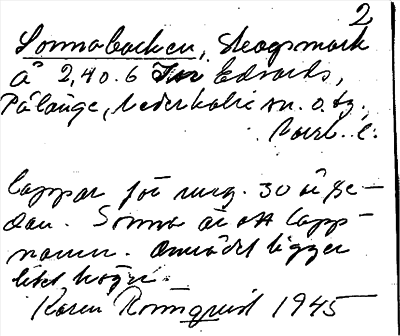 2
Sonnabacken, Skogsmark
å 2,40.6 Edvards,
Pålänge, Nederkalix sn. o. tg.,
Norrb. l.
Lappar för ung. 30 år se-
dan. Sonna är ett lapp-
namn. Området ligger
litet högre.
Karin Rönnquist 1945